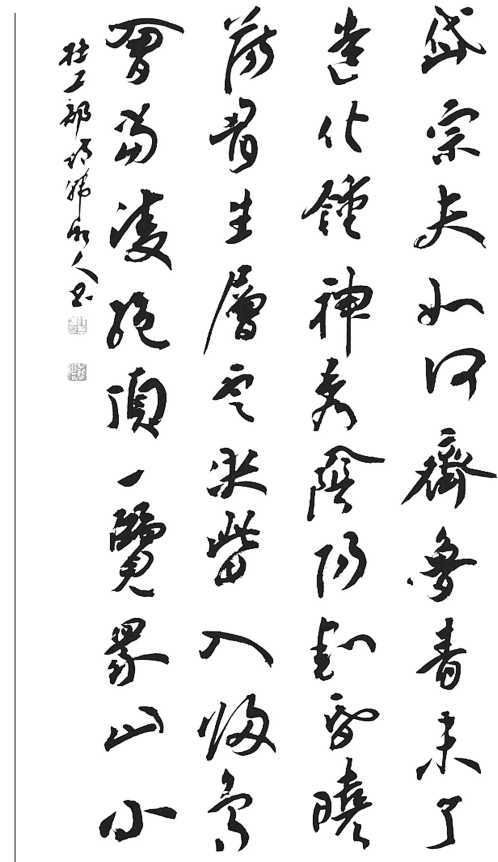 岱宗夫如何齊魯青未了
造化鍾神秀陰陽割昏曉
蕩胷生層雲決眥入歸鳥
會當凌絕頂一覽眾山小
杜工部詩 人書